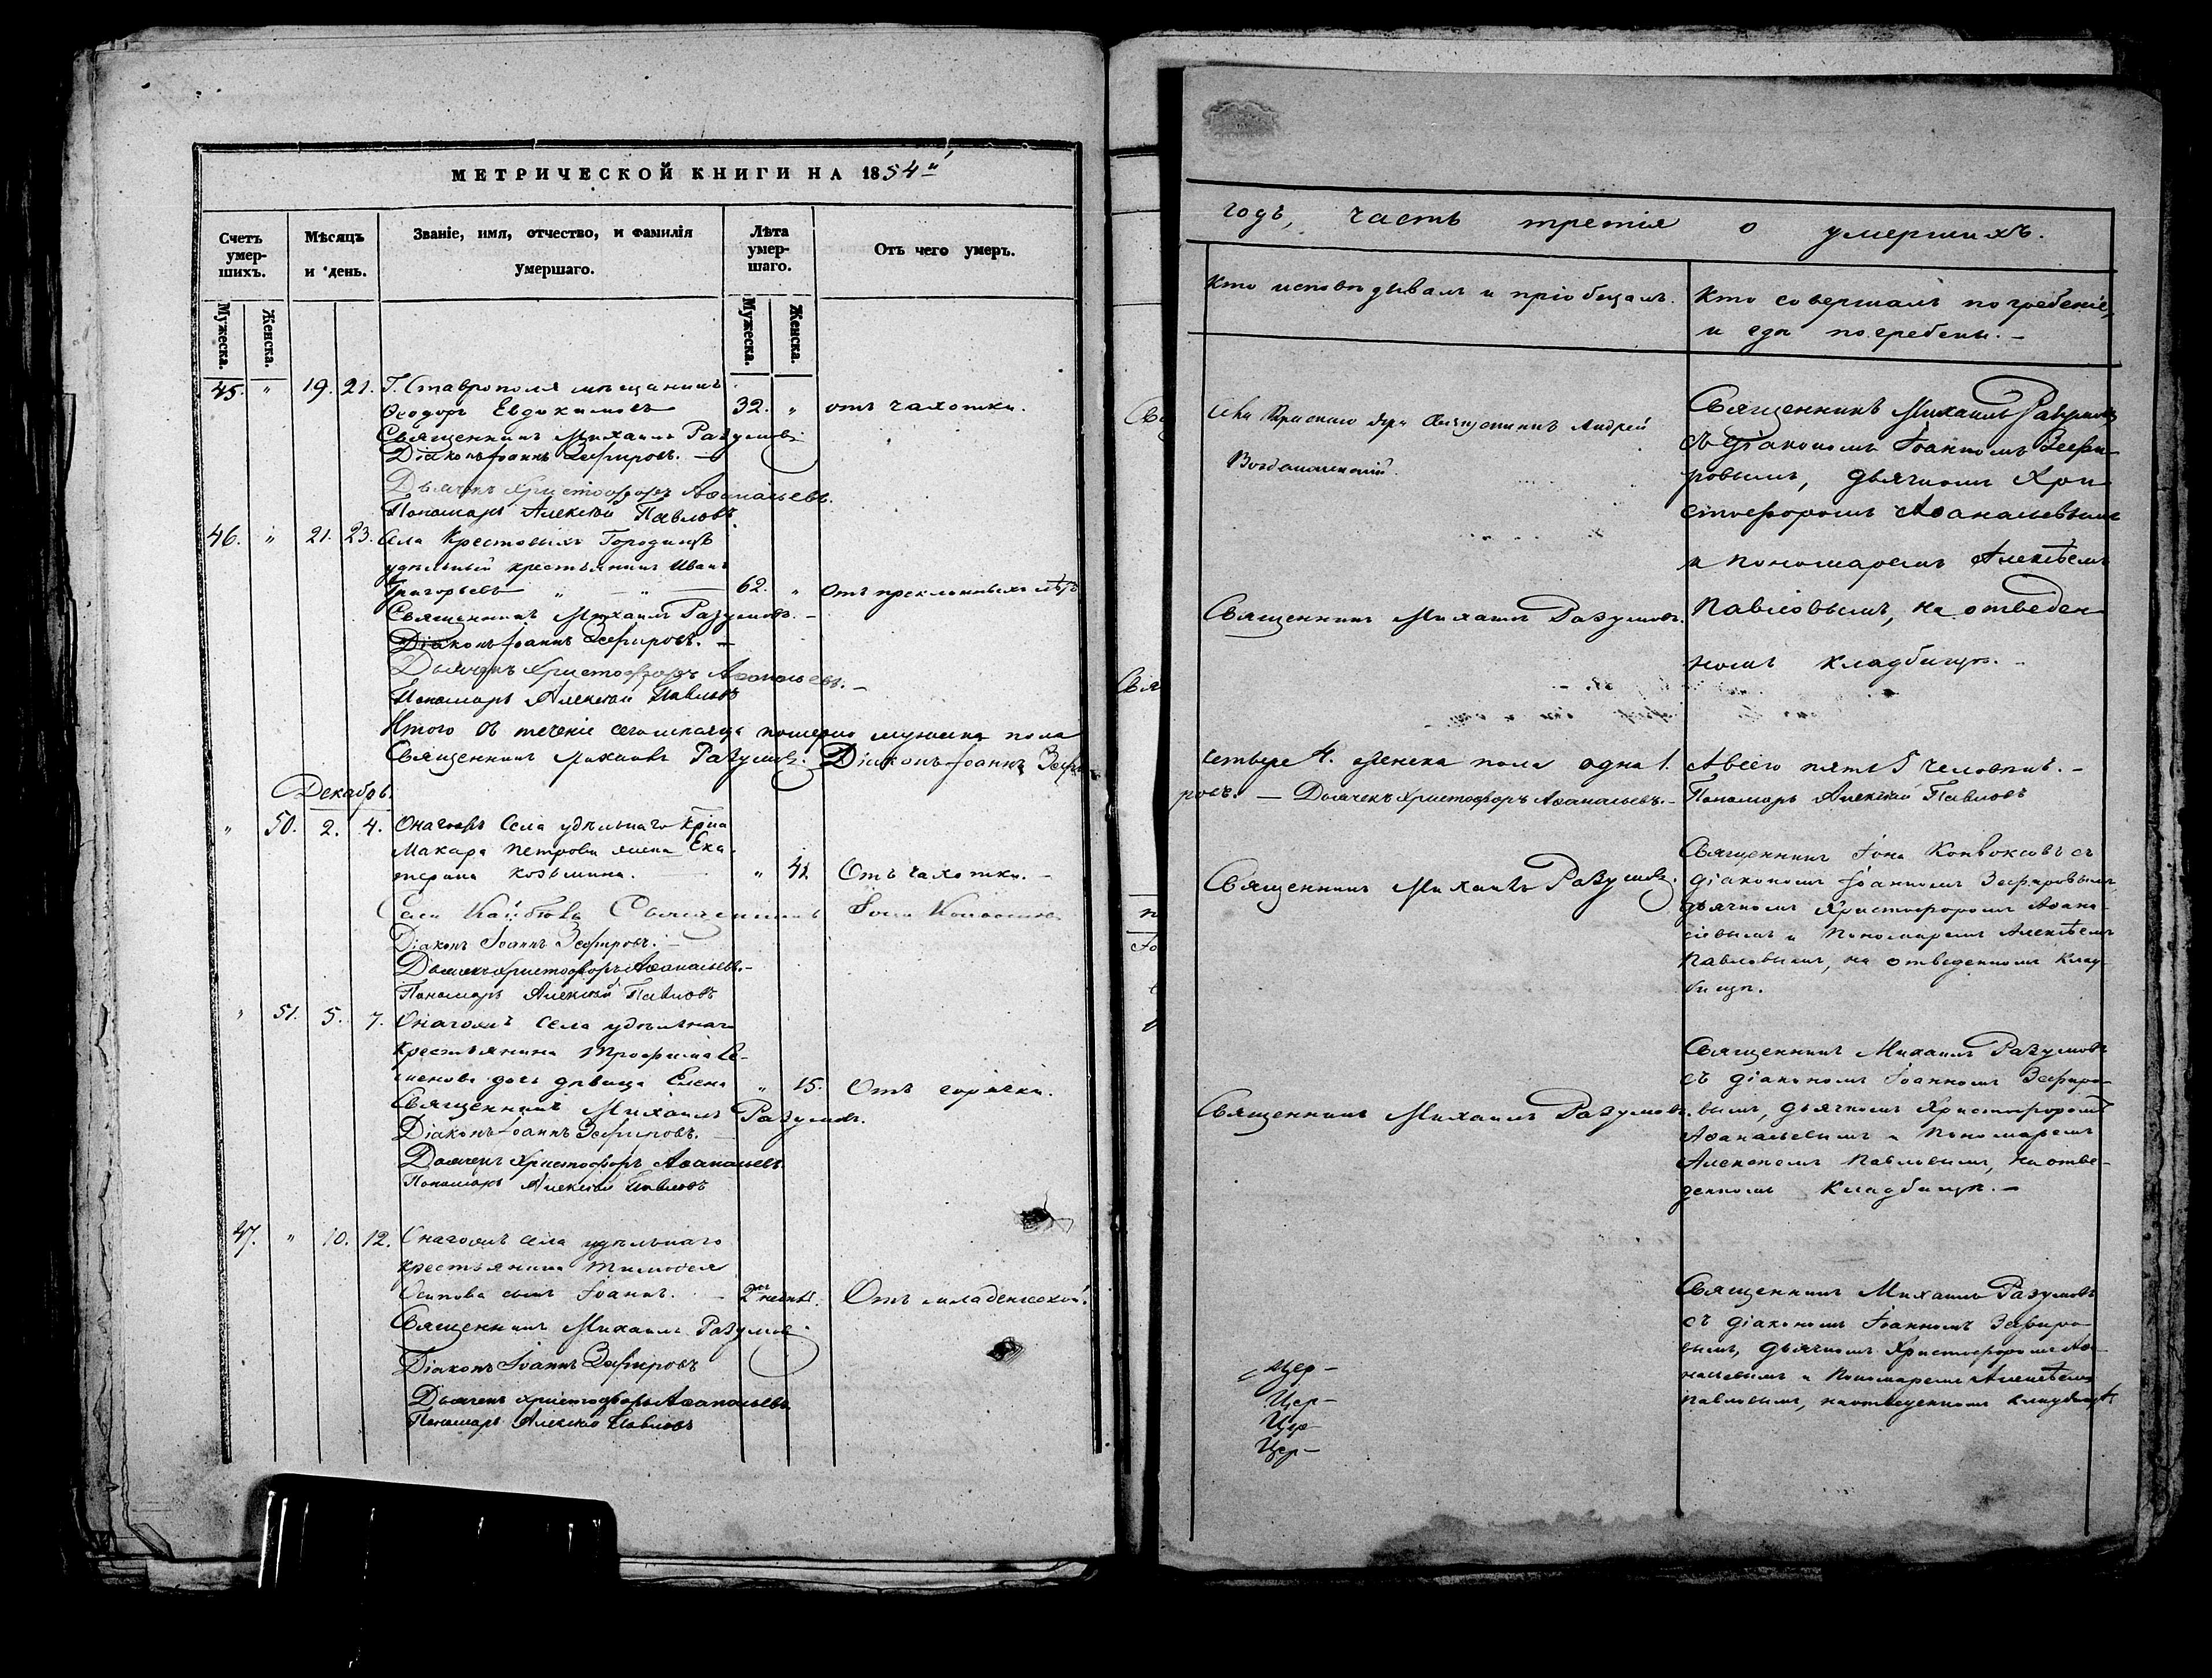 МЕТРИЧЕСКОЙ КНИГИ НА 1854й
Счетъ умер-шихъ.
Мѣсяцъ и день.
Званіе, имя, отчество, и фамилія умершаго.
Лѣта умер-шаго.
Отъ чего умеръ.
Мужеска.
Женска.
Мужеска.
Женска.
45. " 19. 21. Г. Ставрополя мѣщанинъ
Ѳеодоръ Евдокимовъ 32. " отъ чахотки.
Священникъ Михаилъ Разумовъ
Діаконъ Іоаннъ Зефировъ. —
Дьячекъ Христофоръ Аѳанасьевъ.
Пономарь Алексѣй Павловъ.
46. " 21. 23. Села Крестовыхъ Городищъ
удѣльный крестьянинъ Иванъ
Григорьевъ " — " — 62. " Отъ преклонныхъ лѣтъ
Священникъ Михаилъ Разумовъ. —
Діаконъ Іоаннъ Зефировъ. —
Дьячекъ Христофоръ Аѳанасьевъ. —
Пономарь Алексѣй Павловъ
Итого въ теченіе сего мѣсяца померло мужеска пола
Священникъ Михаилъ Разумовъ. Діаконъ Іоаннъ Зефи-
Декабрь.
" 50. 2. 4. Онагожъ Села удѣльнаго кр-на
Макара Петрова жена Ека-
терина Козьмина. " 41. Отъ чахотки. —
Села Священникъ Іона
Діаконъ Іоаннъ Зефировъ. —
Дьячекъ Христофоръ Аѳанасьевъ. —
Пономарь Алексѣй Павловъ
" 51. 5. 7. Онагожъ села удѣльнаго
крестьянина Трофима Се-
менова дочь дѣвица Елена " 15. Отъ горячки.
Священникъ Михаилъ Разумовъ.
Діаконъ Іоаннъ Зефировъ. —
Дьячекъ Христофоръ Аѳанасьевъ
Пономарь Алексѣй Павловъ
47. " 10. 12. Онагожъ села удѣльнаго
крестьянина Тимоѳея
Осипова сынъ Іоаннъ. — 2хъ Отъ младенческой.
Священникъ Михаилъ Разумовъ
Діаконъ Іоаннъ Зефировъ
Дьячекъ Христофоръ Аѳанасьевъ
Пономарь Алексѣй Павловъ
годъ, часть третія о умершихъ.
Кто исповѣдывалъ и пріобщалъ.
Кто совершалъ погребеніе,
и гдѣ погребены. —
Села Краснаго Яра Священникъ Андрей
Священникъ Михаилъ Разумовъ
съ діакономъ Іоанномъ Зефи-
ровымъ, дьячкомъ Хри-
стофоромъ Аѳанасьевымъ
и пономаремъ Алексѣемъ
Павловымъ, на отведен-
номъ кладбищѣ. —
Священникъ Михаилъ Разумовъ.
четыре 4. женска пола одна 1. А всего пять 5 человѣкъ. —
ровъ. — Дьячекъ Христофоръ Аѳанасьевъ. — Пономарь Алексѣй Павловъ
Священникъ Михаилъ Разумовъ.
Священникъ Іона съ
діакономъ Іоанномъ Зефировымъ,
дьячкомъ Христофоромъ Аѳана-
сьевымъ и Пономаремъ Алексѣемъ
Павловымъ, на отведенномъ клад-
бищѣ.
Священникъ Михаилъ Разумовъ.
Священникъ Михаилъ Разумовъ
съ діакономъ Іоанномъ Зефиро-
вымъ, дьячкомъ Христофоромъ
Аѳанасьевымъ и Пономаремъ
Алексѣемъ Павловымъ, на отве-
денномъ кладбищѣ. —
Священникъ Михаилъ Разумовъ
съ діакономъ Іоанномъ Зефиро-
вымъ, дьячкомъ Христофоромъ Аѳа-
насьевымъ и Пономаремъ Алексѣемъ
Павловымъ, на отведенномъ кладбищѣ
Цер—
Цер—
Цер—
Цер—